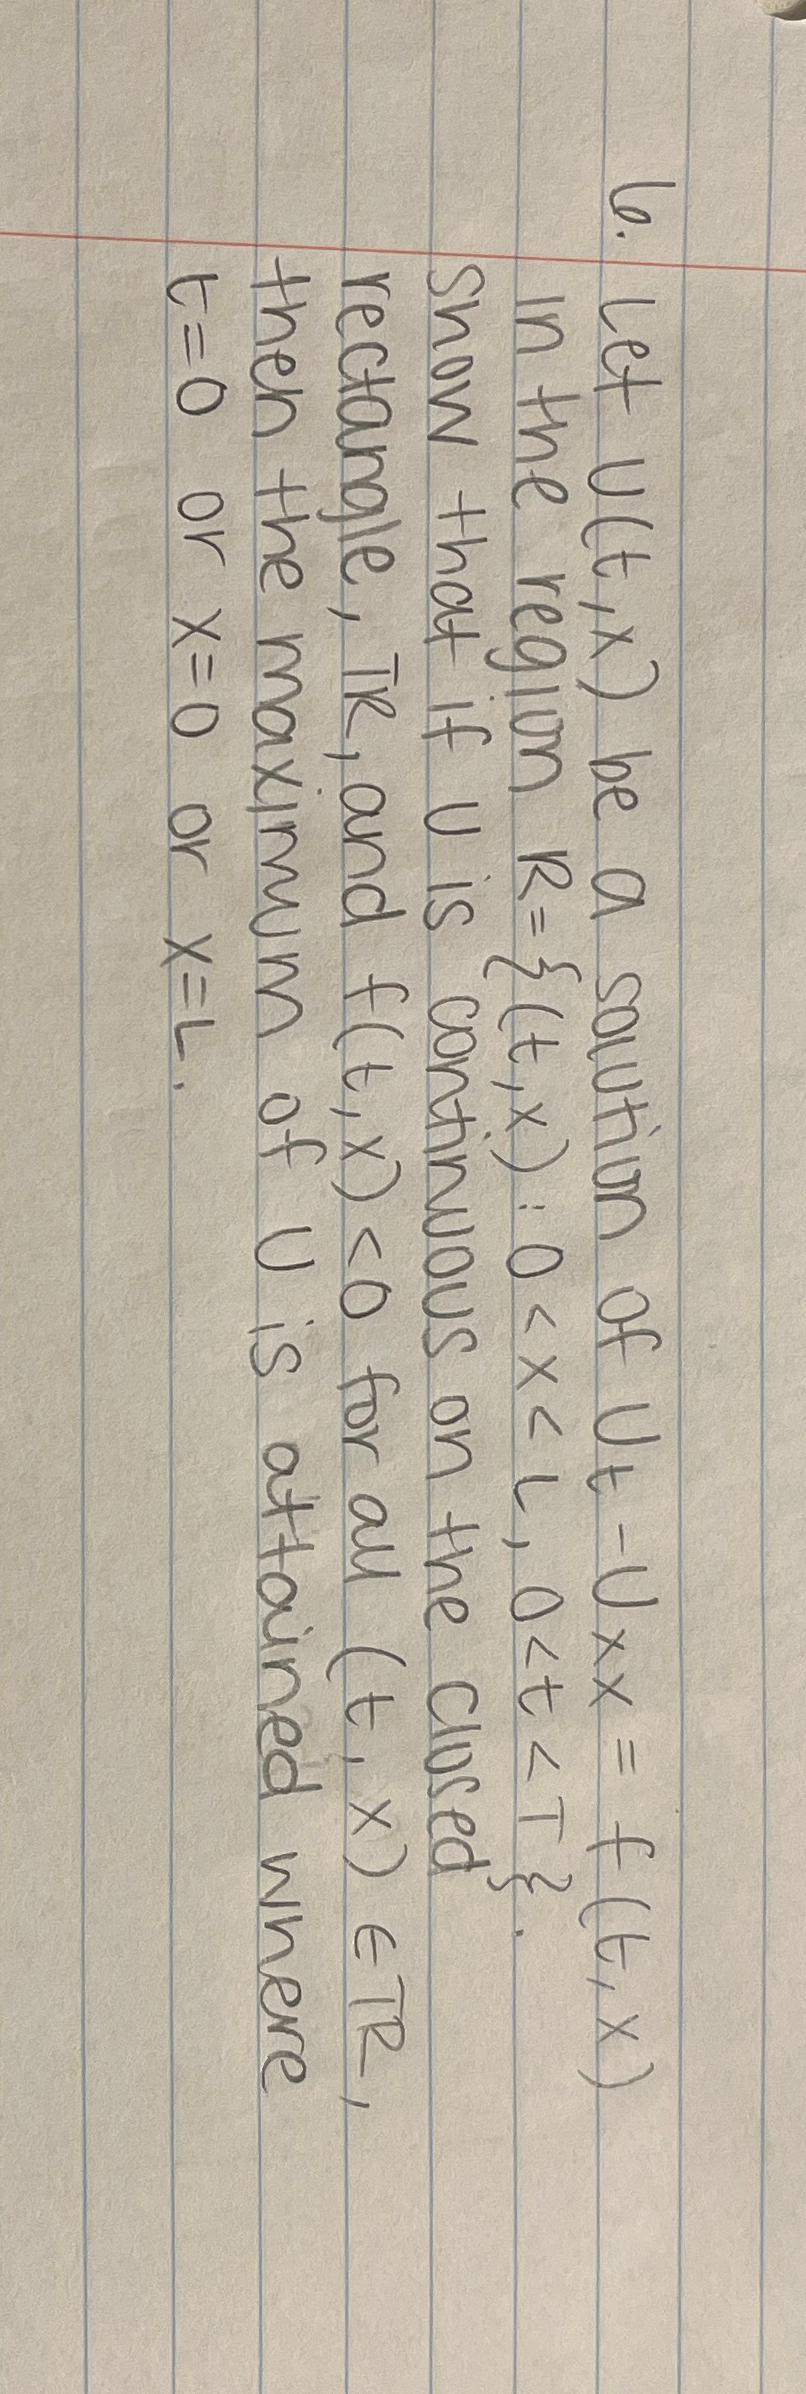 6. Let U(t,x) be a solution of Ut - Uxx = f(t,x)
in the region R={(t,x) : 0<x<L, 0<t<T}.
Show that if U is continuous on the closed
rectangle, R̅, and f(t,x)<0 for all (t,x) ∈ R̅,
then the maximum of U is attained where
t=0 or x=0 or x=L.